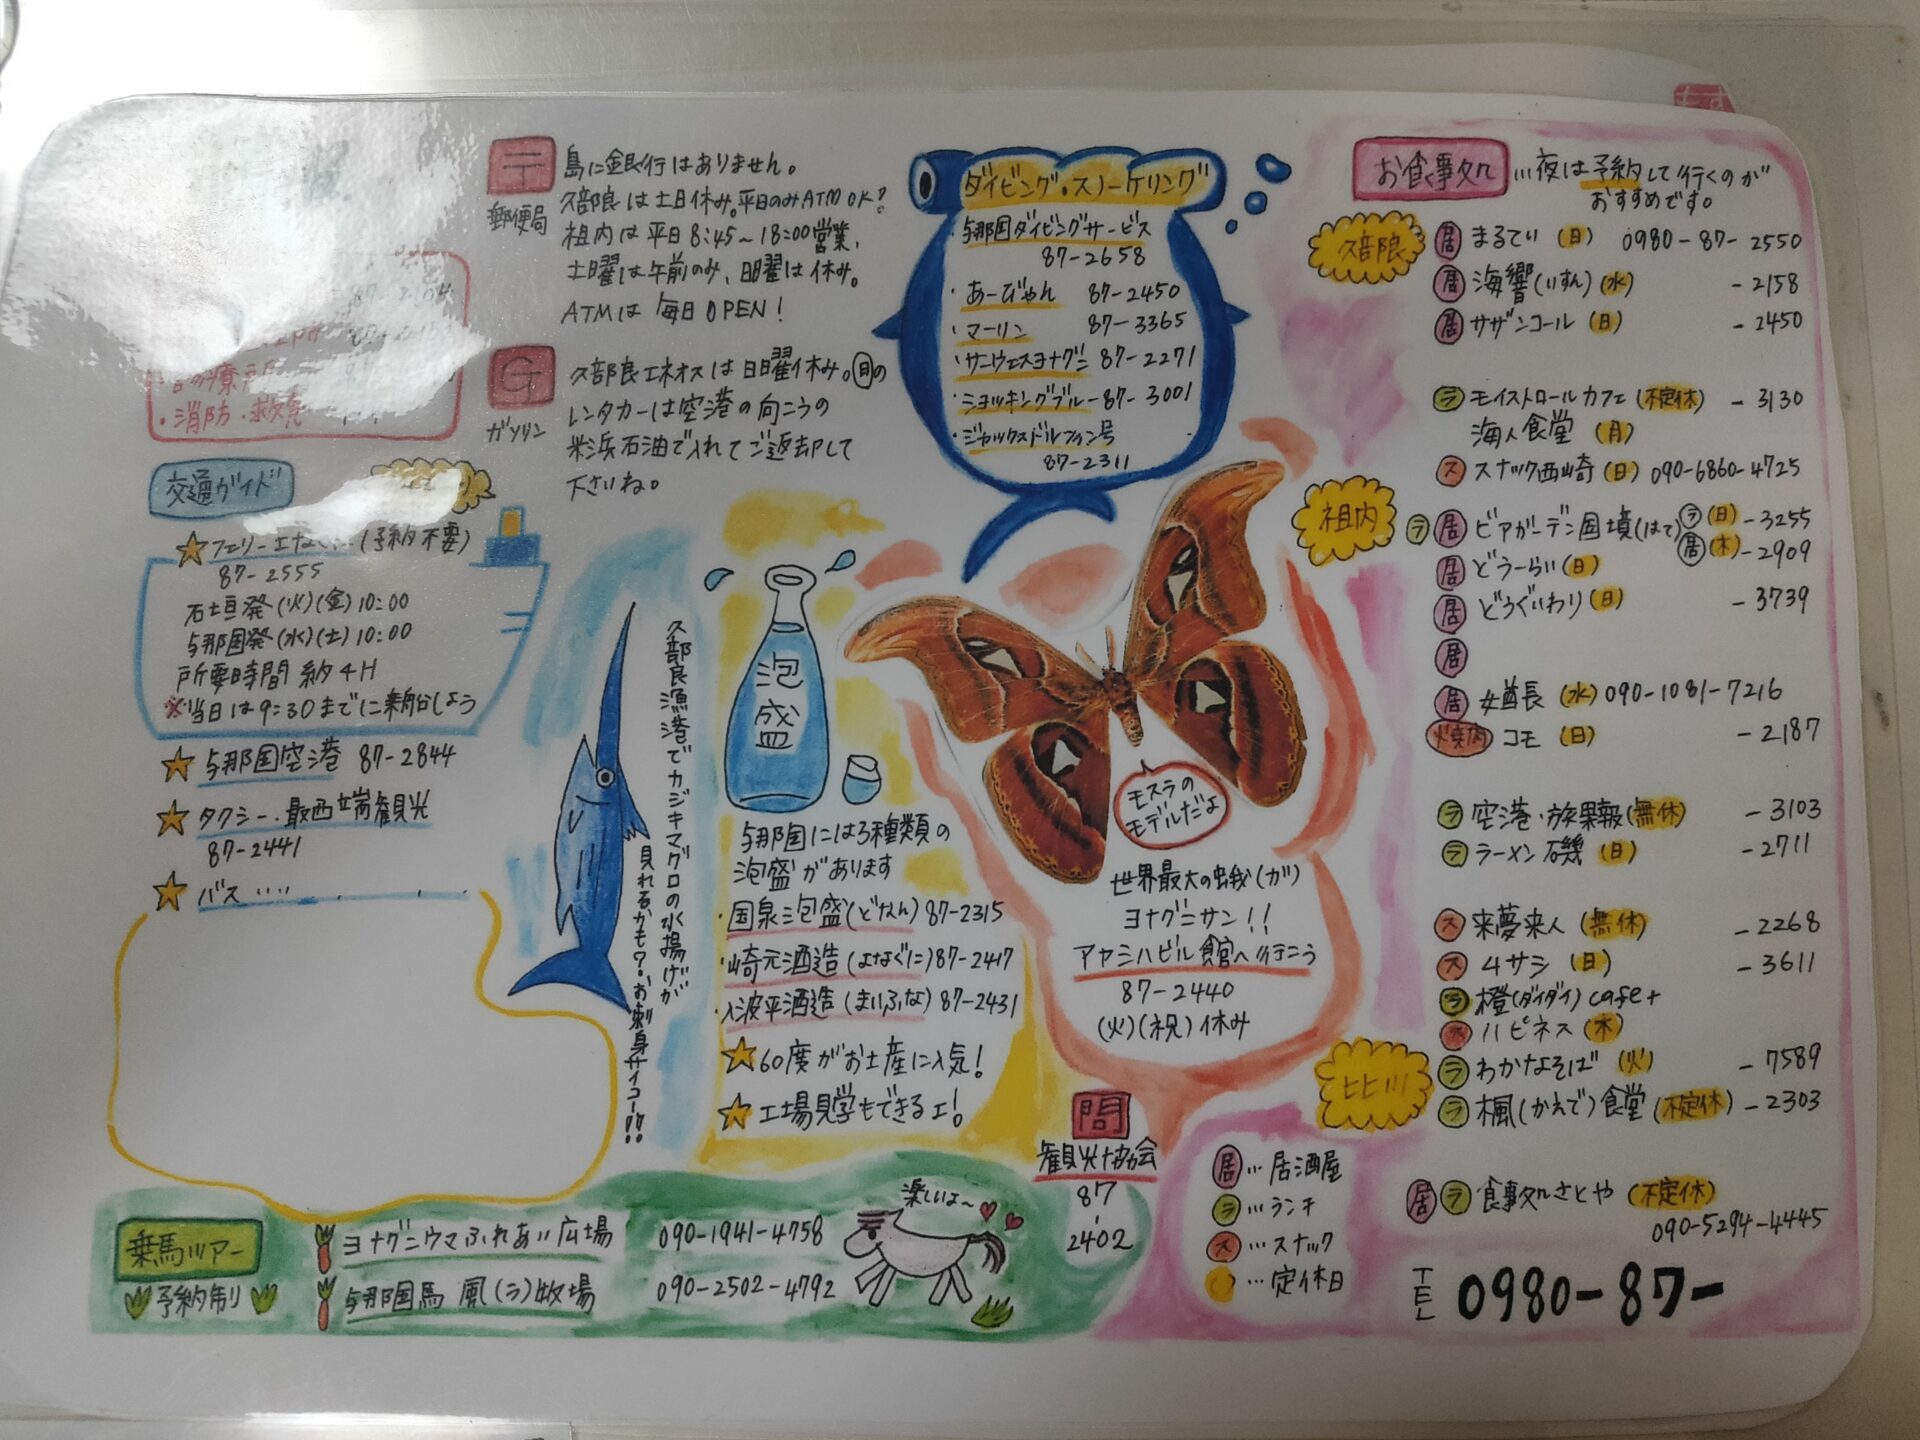 〒
郵便局
島に銀行はありません。
久部良は土日休み。平日のみATM OK?
祖内は平日8:45~18:00営業、
土曜は午前のみ、日曜は休み。
ATMは毎日OPEN!
G
ガソリン
久部良エネオスは日曜休み。
レンタカーは空港の向こうの
米浜石油で入れてご返却して
下さいね。
・消防・救急
交通ガイド
☆フェリー (予約不要)
87-2555
石垣発(火)(金)10:00
与那国発(水)(土)10:00
所要時間 約4H
※当日は9:30までに乗船しよう
☆与那国空港 87-2844
☆タクシー・最西端観光
87-2441
☆バス……
久部良漁港でカジキマグロの水揚げが
見れるかも?・お刺身サイコー!!
泡盛
与那国には3種類の
泡盛があります
・国泉泡盛(どなん)87-2315
・崎元酒造(よなぐに)87-2417
・入波平酒造(まいふな)87-2431
☆60度がお土産に人気!
☆工場見学もできるェ!
ダイビング・スノーケリング
・与那国ダイビングサービス
87-2658
・あーびゃん 87-2450
・マーリン 87-3365
・サーウェスヨナグニ 87-2271
・ショッキングブルー 87-3001
・ジャックスドルフィン号
87-2311
モスラの
モデルだよ
世界最大の蛾(ガ)
ヨナグニサン!!
アヤミハビル館へ行こう
87-2440
(火)(祝)休み
問
観光協会
87
-
2402
乗馬ツアー
予約制
ヨナグニウマふれあい広場 090-1941-4758
与那国馬 風(ラ)牧場 090-2502-4792
楽しいよ~
お食事処 …夜は予約して行くのが
おすすめです。
久部良
居 まるてい (日) 0980-87-2550
居 海響(いすん)(水) -2158
居 サザンコール (日) -2450
ラ モイストロールカフェ(不定休) -3130
海人食堂 (月)
ス スナック西崎 (日) 090-6860-4725
祖内
ラ 居 ビアガーデン国境(はて) ラ(日) -3255
居(木) -2909
居 どぅーらい (日)
居 どぅぐいわり (日) -3739
居
居 女酋長 (水) 090-1081-7216
焼肉 コモ (日) -2187
ラ 空港・旅果報(無休) -3103
ラ ラーメン磯 (日) -2711
ス 来夢来人 (無休) -2268
ス ムサシ (日) -3611
ラ 橙(ダイダイ)cafe+
ス ハピネス (木)
比川
ラ わかなそば (火) -7589
ラ 楓(かえで)食堂 (不定休) -2303
居 ラ 食事処さとや (不定休)
090-5294-4445
居…居酒屋
ラ…ランチ
ス…スナック
○…定休日
TEL 0980-87-